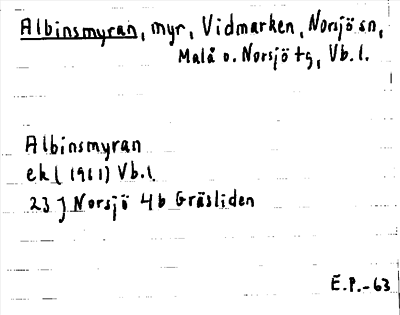 Albinsmyran, myr, Vidmarken, Norsjö sn,
Malå o. Norsjö tg, Vb.l.
Albinsmyran
ekl (1961) Vb.l.
23 J Norsjö 4b Gräsliden
E.P.-63